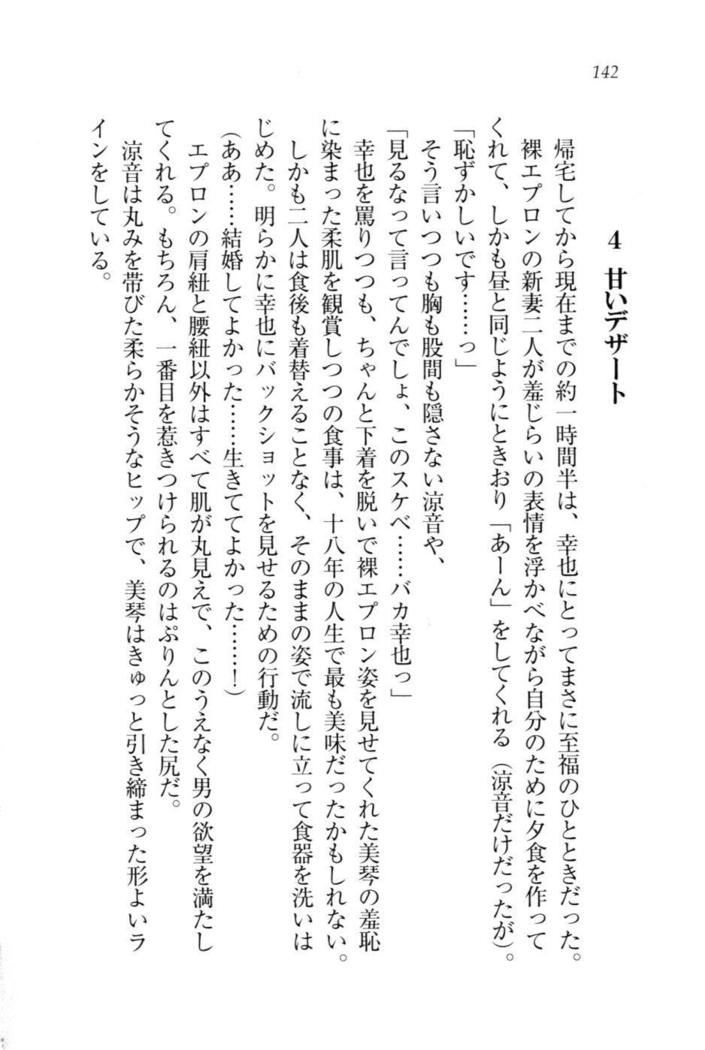 142
4 甘いデザート
帰宅してから現在までの約一時間半は、幸也にとってまさに至福のひとときだった。
裸エプロンの新妻二人が羞じらいの表情を浮かべながら自分のために夕食を作って
くれて、しかも昼と同じようにときおり「あーん」をしてくれる（涼音だけだったが）。
「恥ずかしいです……っ」
そう言いつつも胸も股間も隠さない涼音や、
「見るなって言ってんでしょ、このスケベ……バカ幸也っ」
幸也を罵りつつも、ちゃんと下着を脱いで裸エプロン姿を見せてくれた美琴の羞恥
に染まった柔肌を観賞しつつの食事は、十八年の人生で最も美味だったかもしれない。
しかも二人は食後も着替えることなく、そのままの姿で流しに立って食器を洗いは
じめた。明らかに幸也にバックショットを見せるための行動だ。
（ああ……結婚してよかった……生きててよかった……！）
エプロンの肩紐と腰紐以外はすべて肌が丸見えで、このうえなく男の欲望を満たし
てくれる。もちろん、一番目を惹きつけられるのはぷりんとした尻だ。
涼音は丸みを帯びた柔らかそうなヒップで、美琴はきゅっと引き締まった形よいラ
インをしている。